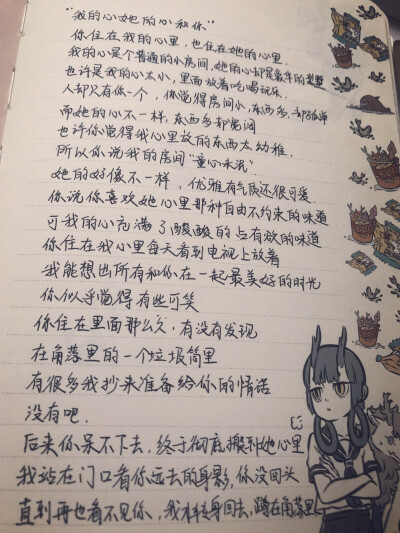 "我的心她的心和你"
你住在我的心里,也住在她的心里.
我的心是个普通的小房间,她的心却是豪华的别墅
也许是我的心太小,里面放着吃喝玩乐.
人却只有你一个,你觉得房间小,东西多,却孤单
而她的心不一样,东西多却宽阔
也许你觉得我心里放的东西太幼稚.
所以你说我的房间"童心未泯"
她的好像不一样,优雅有气质还很可爱
你说你喜欢她心里那种自由不约束的味道
可我的心充满了酸酸的占有欲的味道
你住在我心里每天看到电视上放着
我能想出所有和你在一起最美好的时光
你似乎觉得有些可笑
你住在里面那么久,有没有发现
在角落里的一个垃圾筒里
有很多我抄来准备给你的情话
没有吧.
后来你呆不下去,终于彻底搬到她心里
我站在门口看你远去的身影,你没回头
直到再也看不见你,我才转身回去,蹲在角落里